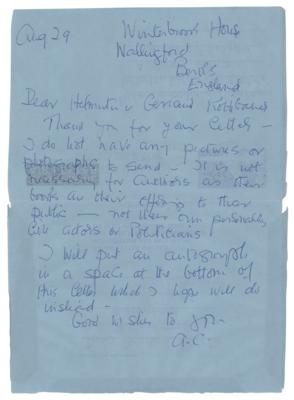 Aug 29 Winterbrook House
Wallingford
Berks
England
Dear Helmuth & Gerhard
Thank you for your letter –
I do not have any pictures or
photographs to send – It is not
necessary for authors as their
books are their offering to their
public — not their own personality
like actors or Politicians
I will put an autograph
in a space at the bottom of
this letter which I hope will do
instead –
Good wishes to you –
A.C.